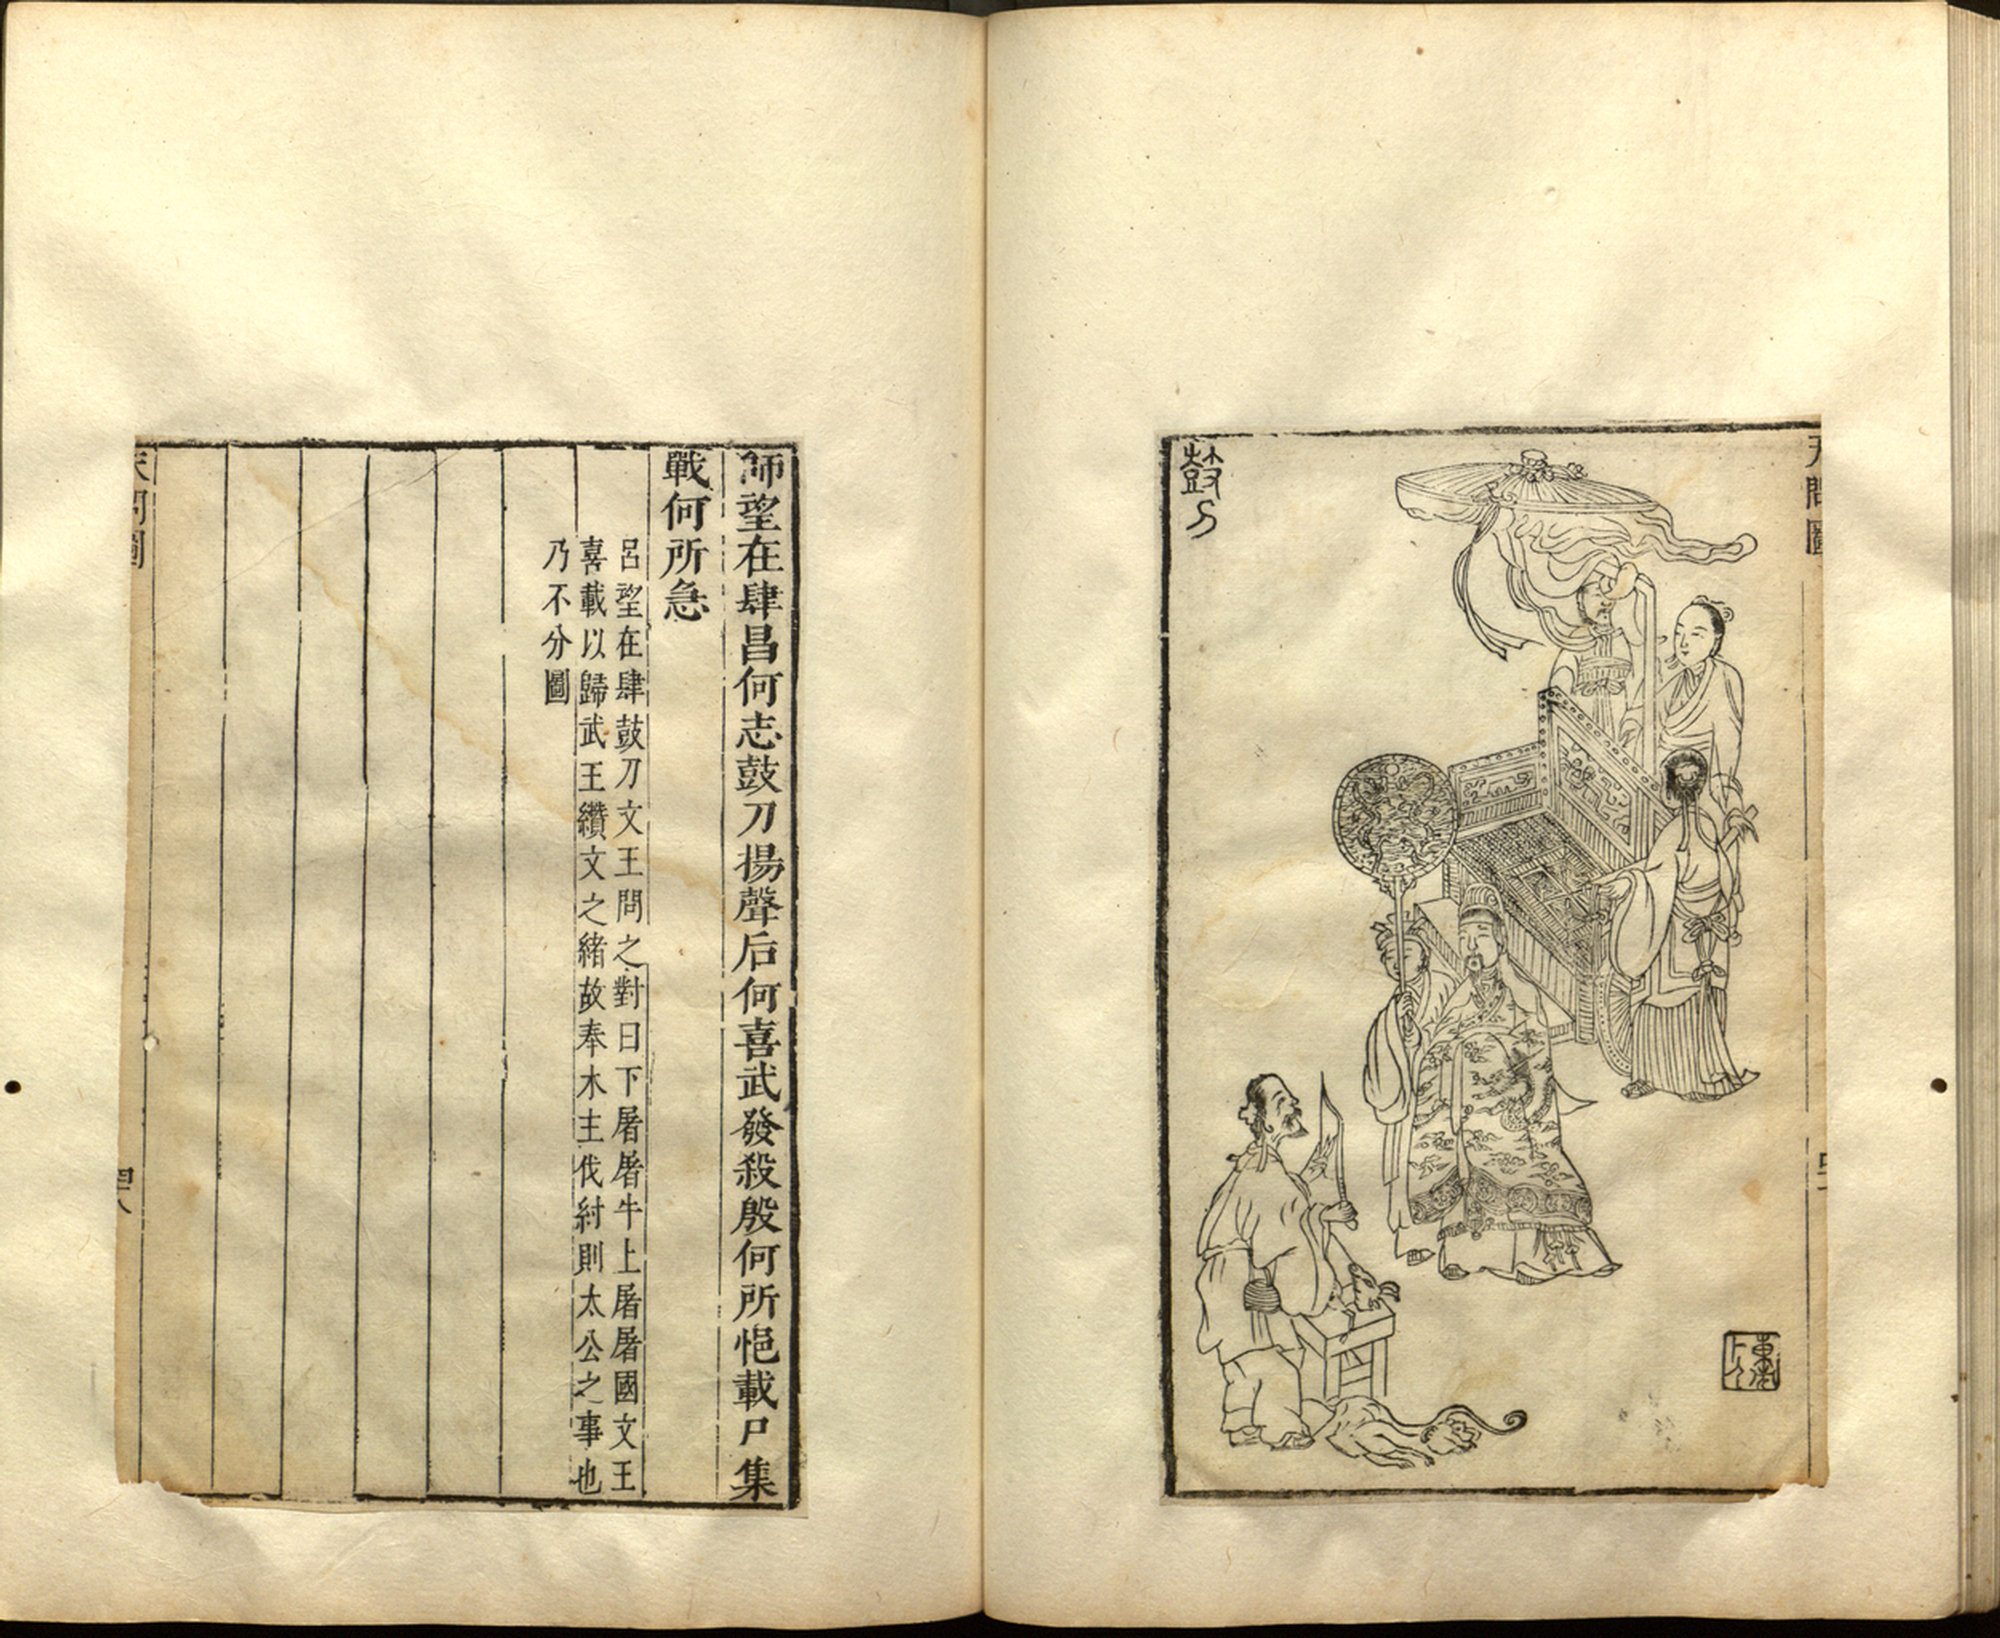 天問圖
鼓刀
師望在肆昌何志鼓刀揚聲后何喜武發殺殷何所悒載尸集
戰何所急
呂望在肆鼓刀文王問之對曰下屠屠牛上屠屠國文王
喜載以歸武王纘文之緒故奉木主伐紂則太公之事也
乃不分圖
天問圖
四八